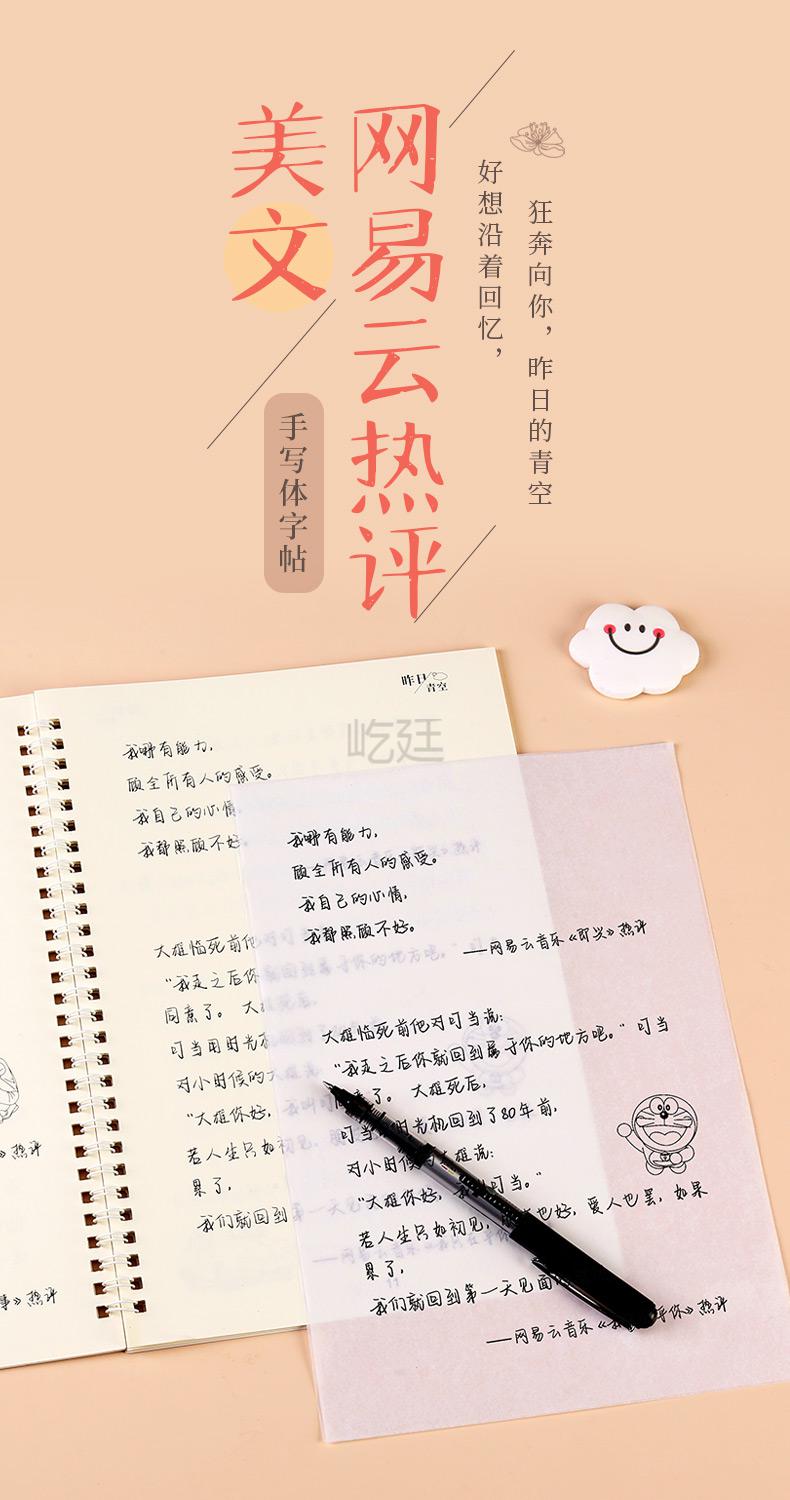 网易云热评
美文
手写体字帖
好想沿着回忆，
狂奔向你，昨日的青空
昨日
青空
屹廷
我哪有能力，
顾全所有人的感受。
我自己的心情，
我都照顾不好。
大雄临死前他对叮当
“我走之后你就回到属于你的地方吧。”
同意了。 大雄死后，
叮当用时光机
对小时候的大雄
“大雄你好，我叫叮
若人生只如初见，
累了，
我们就回到第一天见
热评
事》热评
我哪有能力，
顾全所有人的感受。
我自己的心情，
我都照顾不好。
——网易云音乐《即兴》热评
大雄临死前他对叮当说：
“我走之后你就回到属于你的地方吧。”叮当
意了。 大雄死后，
叮当 时光机回到了80年前，
对小时候 大雄说：
“大雄你好， 叮当。”
若人生只如初见， 也好，爱人也罢，如果
累了，
我们就回到第一天见面
——网易云音乐《我 乎你》热评